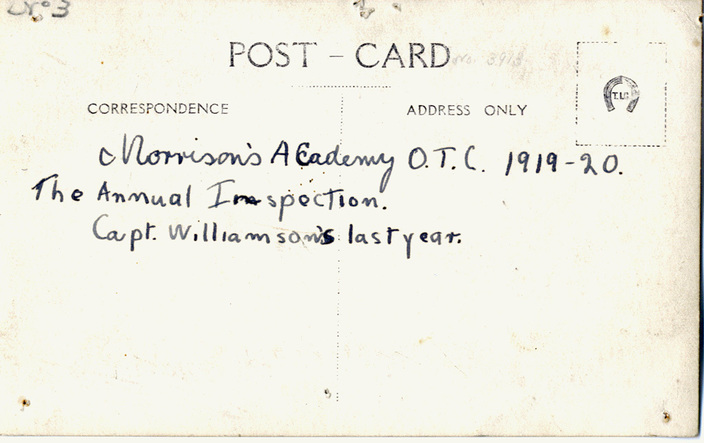 No 3
POST - CARD
No. 3913
CORRESPONDENCE
ADDRESS ONLY
Morrison's Academy O.T.C. 1919-20.
The Annual Inspection.
Capt. Williamson's last year.